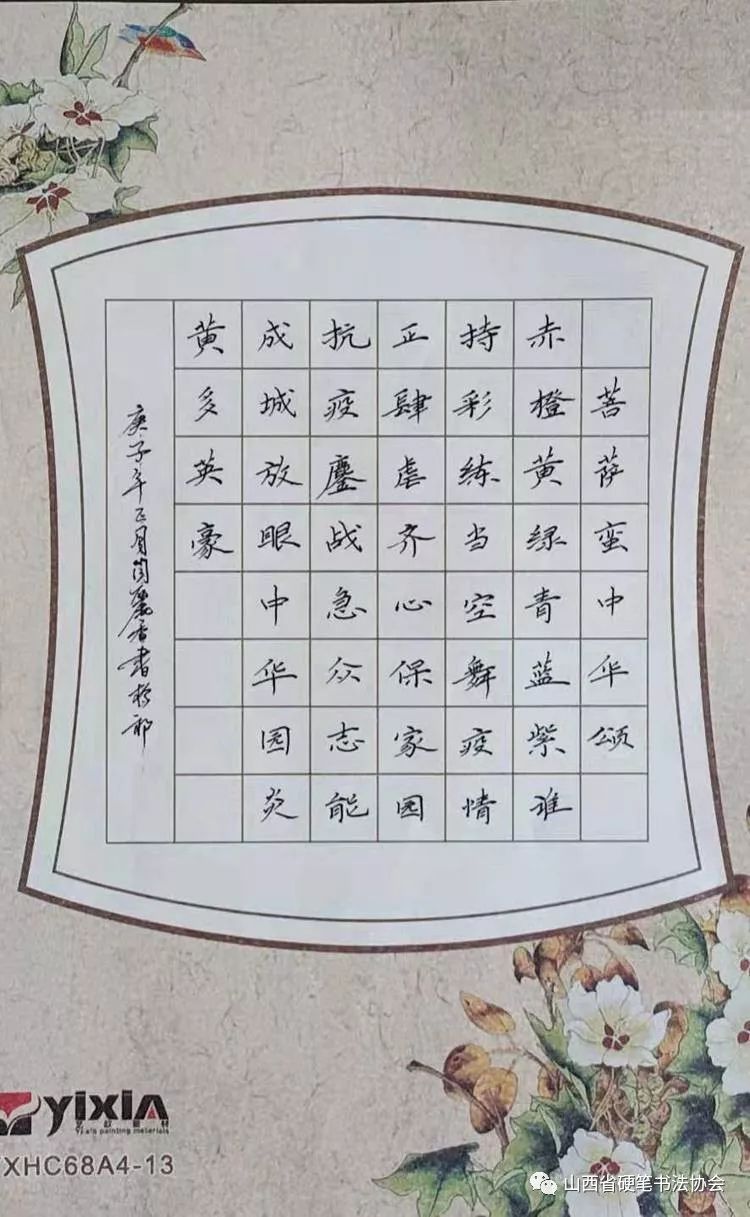 菩萨蛮中华颂
赤橙黄绿青蓝紫谁
持彩练当空舞疫情
正肆虐齐心保家园
抗疫鏖战急众志能
成城放眼中华园炎
黄多英豪
庚子年正月闫丽香书于
yixin
Yixin painting materials
XHC68A4-13
山西省硬笔书法协会